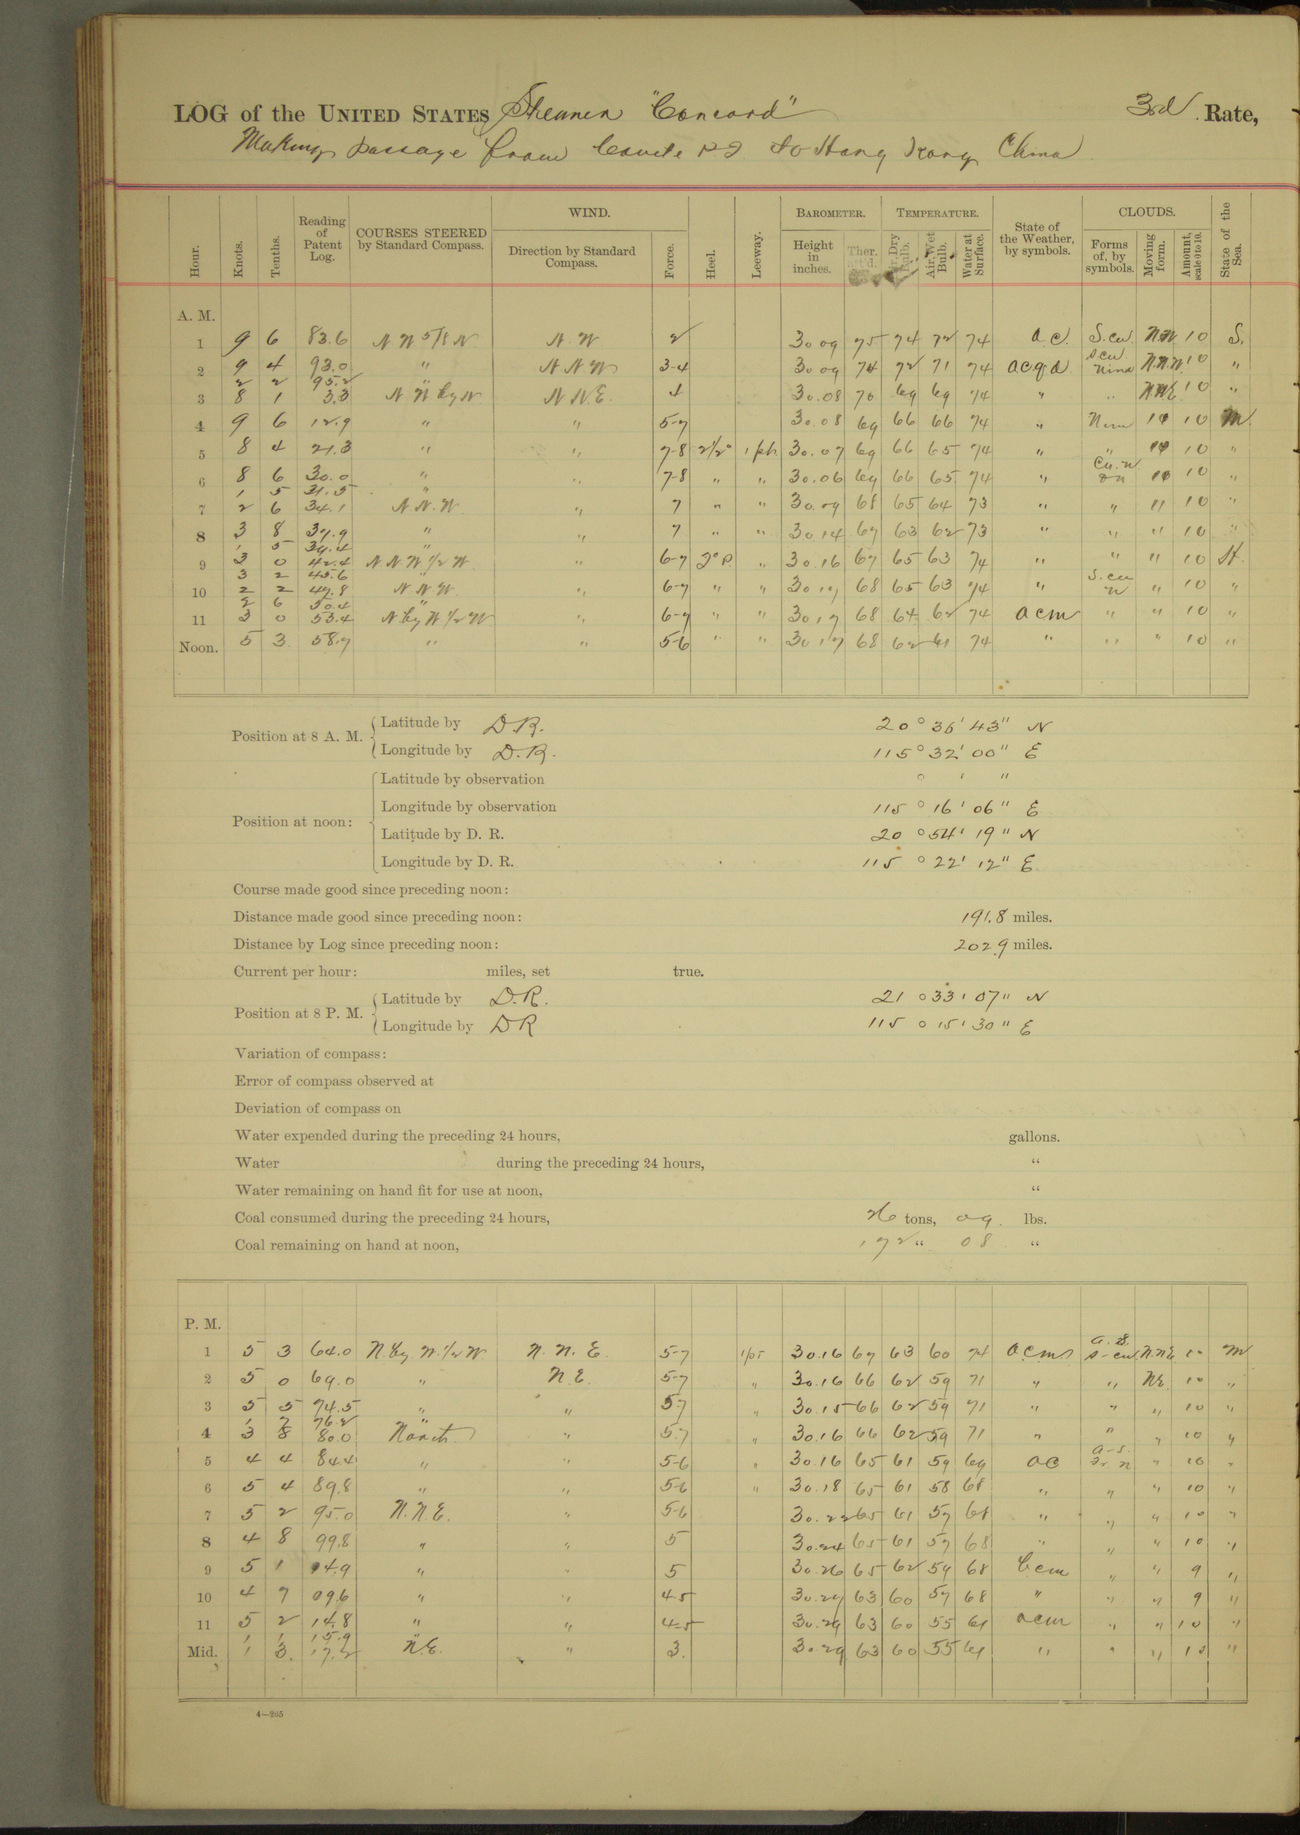 LOG of the UNITED STATES Steamer "Concord" 3rd Rate,
Making passage from Cavite P.I. to Hong Kong China
Hour. Knots. Tenths. Reading of Patent Log. COURSES STEERED by Standard Compass. WIND. Direction by Standard Compass. Force. Heel. Leeway. BAROMETER. Height in inches. Ther. att'd. TEMPERATURE. Air, Dry Bulb. Air, Wet Bulb. Water at Surface. State of the Weather, by symbols. CLOUDS. Forms of, by symbols. Moving form. Amount, scale 0 to 10. State of the Sea.
A. M.
1 9 6 83.6 N W 5/8 N N. W 2 30 09 75 74 72 74 o.c. S.cu. N.W. 10 S.
2 9 4 93.0 " N N W 3-4 30 09 74 72 71 74 o c q d S cu 10 "
2 2 95.2 "
3 8 1 3.3 N W by N N N.E. 4 30.08 70 69 69 74 " " N.N.E. 10 "
4 9 6 12.9 " " 5-7 30.08 69 66 66 74 " Nim 10 M.
5 8 4 21.3 " " 7-8 2½° 1 pt. 30.07 69 66 65 74 " " 10 "
6 8 6 30.0 " " 7-8 " " 30.06 69 66 65 74 " 10 "
1 5 31.5 "
7 2 6 34.1 N N. W. " 7 " " 30.09 68 65 64 73 " " " 10 "
8 3 8 37.9 " " 7 " " 30.14 67 63 62 73 " " " 10 "
1 5 39.4 "
9 3 0 42.4 N N W ½ W. " 6-7 2° P. " 30.16 67 65 63 74 " " " 10 H.
3 2 45.6 "
10 2 2 47.8 N N W. " 6-7 " " 30 17 68 65 63 74 " S. cu n " 10 "
2 6 50.4 "
11 3 0 53.4 N by W ½ W " 6-7 " " 30 17 68 64 62 74 o c m " " 10 "
Noon. 5 3 58.7 " " 5-6 " " 30 17 68 62 61 74 " " " 10 "
Position at 8 A. M. Latitude by D.R. 20° 36' 43" N
Longitude by D.R. 115° 32' 00" E
Position at noon: Latitude by observation ° ' "
Longitude by observation 115° 16' 06" E
Latitude by D. R. 20° 54' 19" N
Longitude by D. R. 115° 22' 12" E
Course made good since preceding noon:
Distance made good since preceding noon: 191.8 miles.
Distance by Log since preceding noon: 202.9 miles.
Current per hour: miles, set true.
Position at 8 P. M. Latitude by D.R. 21° 33' 07" N
Longitude by D R 115° 15' 30" E
Variation of compass:
Error of compass observed at
Deviation of compass on
Water expended during the preceding 24 hours, gallons.
Water during the preceding 24 hours, "
Water remaining on hand fit for use at noon, "
Coal consumed during the preceding 24 hours, 26 tons, 09. lbs.
Coal remaining on hand at noon, 172 " 08 "
P. M.
1 5 3 64.0 N. by W. ½ W N. N. E. 5-7 1 pt 30.16 67 63 60 74 o c m S-cu N.N.E 10 M
2 5 0 69.0 " N.E. 5-7 " 30.16 66 62 59 71 " " N.E. 10 "
3 5 5 74.5 " " 5-7 " 30.15 66 62 59 71 " " " 10 "
1 7 76.2 "
4 3 8 80.0 North " 5-7 " 30.16 66 62 59 71 " " " 10 "
5 4 4 84.4 " " 5-6 " 30.16 65 61 59 69 o c " 10 "
6 5 4 89.8 " " 5-6 " 30.18 65 61 58 68 " " " 10 "
7 5 2 95.0 N. N. E. " 5-6 30.22 65 61 57 68 " " " 10 "
8 4 8 99.8 " " 5 30.24 65 61 57 68 " " " 10 "
9 5 1 04.9 " " 5 30.26 65 62 59 68 b c m " " 9 "
10 4 7 09.6 " " 4-5 30.27 63 60 57 68 " " " 9 "
11 5 2 14.8 " " 4-5 30.29 63 60 55 69 o c m " " 10 "
1 1 15.9 "
Mid. 1 3. 17.2 N.E. " 3. 30.29 63 60 55 69 " " " 10 "
4—265